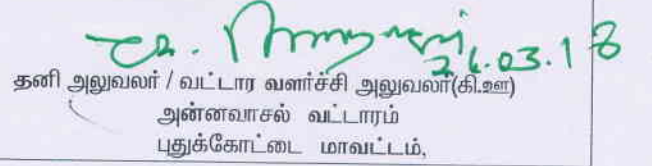 26.03.18
தனி அலுவலர் / வட்டார வளர்ச்சி அலுவலர்(கி.ஊ)
அன்னவாசல் வட்டாரம்
புதுக்கோட்டை மாவட்டம்,